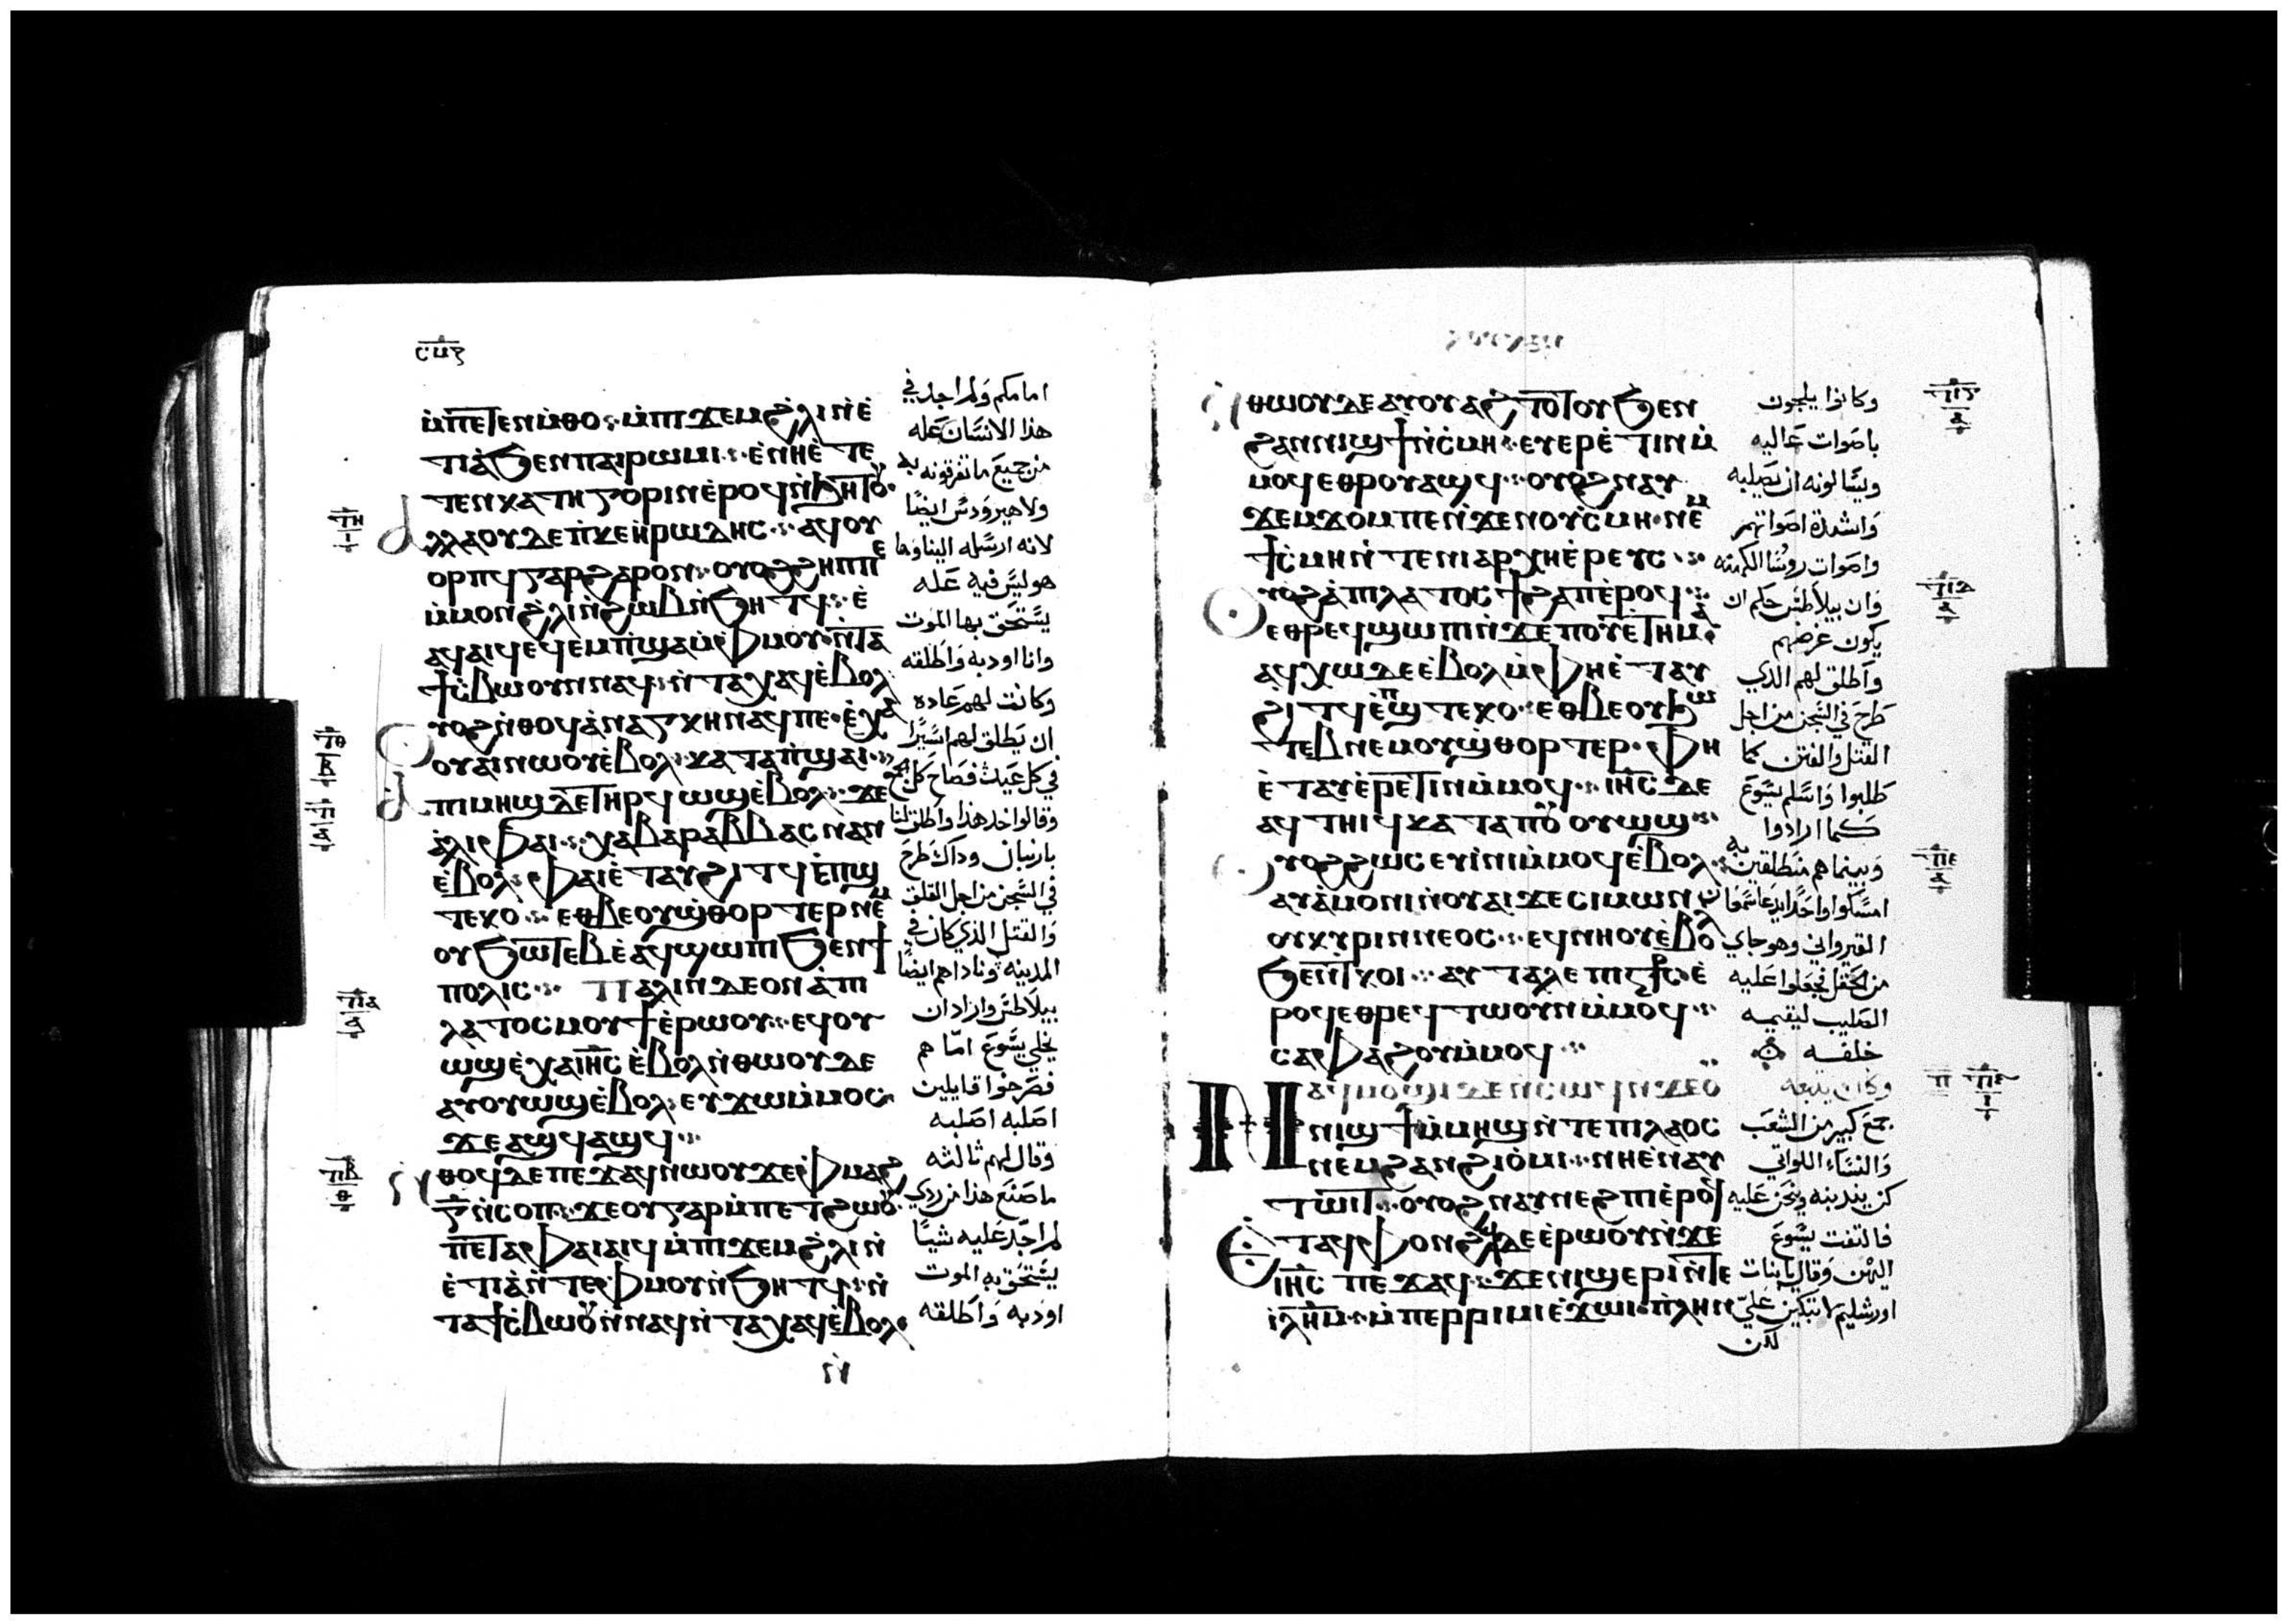 ⲥⲙⲋ
ⲙ̀ⲡⲉⲧⲉⲛⲙ̀ⲑⲟ⁘ ⲙ̀ⲡⲓϫⲉⲙϩ̀ⲗⲓ ⲛ̀ⲉ̀
ⲧⲓⲁ̀ϧⲉⲛⲡⲁⲓⲣⲱⲙⲓ⁘ ⲉ̀ⲛⲏⲉ̀ⲧⲉ
ⲧⲉⲛⲭⲁⲧⲏⲅⲟⲣⲓⲛⲉ̀ⲣⲟϥⲛ̀ϧⲏⲧⲟⲩ
ⲁⲗⲗⲁⲟⲩⲇⲉⲡ̀ⲕⲉⲏ̀ⲣⲱⲇⲏⲥ⁘ ⲁϥⲟⲩ
ⲟⲣⲡϥⲅⲁⲣϩⲁⲣⲟⲛ⁘ ⲟⲩⲟϩϩⲏⲡⲡⲉ
ⲙ̀ⲙⲟⲛϩ̀ⲗⲓⲛ̀ϩⲱⲃⲛ̀ϧⲏⲧϥ⁘ ⲉ̀
ⲁϥⲁⲓϥⲉϥⲉⲙⲡ̀ϣⲁⲙ̀ⲫⲙⲟⲩ⁘ ⲛ̀ⲧⲁ
ϯⲥ̀ⲃⲱⲟⲩⲛⲛⲁϥ⁘ ⲛ̀ⲧⲁⲭⲁϥⲉ̀ⲃⲟⲗ
ⲟⲩⲟϩⲛ̀ⲑⲟϥⲁ̀ⲛⲁⲅⲕⲏⲛⲁϥⲡⲉ⁘ ⲉ̀ⲭⲁ
ⲟⲩⲁⲓⲛⲱⲟⲩⲉ̀ⲃⲟⲗ⁘ ⲕⲁⲧⲁⲡ̀ϣⲁⲓ⁘
ⲁⲡⲓⲙⲏϣⲇⲉⲧⲏⲣϥⲱϣⲉ̀ⲃⲟⲗ⁘ ϫⲉ
ⲁ̀ⲗⲓⲫⲁⲓ⁘ ⲭⲁⲃⲁⲣⲁⲃⲃⲁⲥⲛⲁⲛ
ⲉ̀ⲃⲟⲗ⁘ ⲫⲁⲓⲉ̀ⲧⲁⲩϩⲓⲧϥⲉ̀ⲡϣ
ⲧⲉⲕⲟ⁘ ⲉⲑⲃⲉⲟⲩϣ̀ⲑⲟⲣⲧⲉⲣⲛⲉⲙ
ⲟⲩϧⲱⲧⲉⲃⲉ̀ⲁϥϣⲱⲡⲓϧⲉⲛϯ
ⲡⲟⲗⲓⲥ⁘ ⲡⲁⲗⲓⲛⲇⲉⲟⲛⲁ̀ⲡⲓ
ⲗⲁⲧⲟⲥⲙⲟⲩϯⲉ̀ⲣⲱⲟⲩ⁘ ⲉϥⲟⲩ
ⲱϣⲉ̀ⲭⲁⲓⲏⲥⲉ̀ⲃⲟⲗⲛ̀ⲑⲱⲟⲩⲇⲉ
ⲁⲩⲟⲩⲱϣⲉ̀ⲃⲟⲗ⁘ ⲉⲩϫⲱⲙ̀ⲙⲟⲥ
ϫⲉⲁϣϥⲁϣϥ⁘
ⲛ̀ⲑⲟϥⲇⲉⲡⲉϫⲁϥⲛⲱⲟⲩϫⲉⲫⲙⲁϩ
ⲅ̅ⲛ̀ⲥⲟⲡ⁘ ϫⲉⲟⲩⲅⲁⲣⲙ̀ⲡⲉⲧϩⲱⲟⲩ
ⲡⲉⲧⲁⲫⲁⲓⲁⲓϥ ⲙ̀ⲡⲓϫⲉⲙϩ̀ⲗⲓⲛ̀
ⲉ̀ⲧⲓⲁ̀ⲛ̀ⲧⲉⲫⲙⲟⲩⲛ̀ϧⲏⲧϥ⁘ ⲛ̀
ⲧⲁϯⲥ̀ⲃⲱⲟⲩⲛⲛⲁϥⲛ̀ⲧⲁⲭⲁϥⲉ̀ⲃⲟⲗ⁘
امامكم ولم اجد في
هذا الانسان عله
من جميع ما تقرفونه به
ولا هيرودس ايضًا
لانه ارسله الينا وها
هو ليس فيه عله
يستحق بها الموت
وانا اودبه واطلقه
وكانت لهم عاده
ان يطلق لهم اسيرًا
في كل عيد فصاح كل الجمع
وقالوا خذ هذا واطلق لنا
بارنبان وداك طرح
في السجن من اجل القلق
والقتل الذي كان في
المدينه وناداهم ايضًا
بيلاطس واراد ان
يخلي يسوع امّا هم
فصرخوا قايلين
اصلبه اصلبه
وقال لهم ثالثه
ما صنع هذا من ردي
لم اجد عليه شيًا
يستحق به الموت
اودبه واطلقه
ⲛ̀ⲑⲱⲟⲩⲇⲉⲁⲩⲟⲩⲁϩⲧⲟⲧⲟⲩϧⲉⲛ
ϩⲁⲛⲛⲓϣϯⲛ̀ⲥ̀ⲙⲏ⁘ ⲉⲩⲉⲣⲉ̀ⲧⲓⲛⲙ̀
ⲙⲟϥⲉⲑⲣⲟⲩⲁϣϥ⁘ ⲟⲩⲟϩⲛⲁⲩ
ϫⲉⲙϫⲟⲙⲡⲉⲛ̀ϫⲉⲛⲟⲩⲥ̀ⲙⲏ⁘ ⲛⲉⲙ
ϯⲥ̀ⲙⲏⲛ̀ⲧⲉⲛⲓⲁⲣⲭⲏⲉ̀ⲣⲉⲩⲥ⁘
ⲟⲩⲟϩⲁ̀ⲡⲓⲗⲁⲧⲟⲥϯϩⲁⲡⲉ̀ⲣⲟϥ⁘
ⲉⲑⲣⲉϥϣⲱⲡⲓⲛ̀ϫⲉⲡⲟⲩⲉ̀ⲧⲏⲙⲁ
ⲁϥⲭⲱⲇⲉⲉ̀ⲃⲟⲗⲙ̀ⲫⲏⲉ̀ⲧⲁⲩ
ϩⲓⲧϥⲉ̀ⲡϣⲧⲉⲕⲟ⁘ ⲉⲑⲃⲉⲟⲩϧⲱ
ⲧⲉⲃⲛⲉⲙⲟⲩϣ̀ⲑⲟⲣⲧⲉⲣ⁘ ⲫⲏ
ⲉ̀ⲧⲁⲩⲉ̀ⲣⲉⲧⲓⲛⲙ̀ⲙⲟϥ⁘ ⲓⲏⲥⲇⲉ
ⲁϥⲧⲏⲓϥⲕⲁⲧⲁⲡⲟⲩⲟⲩⲱϣ⁘
ⲟⲩⲟϩϩⲱⲥⲉⲩⲓ̀ⲛⲓⲙ̀ⲙⲟϥⲉ̀ⲃⲟⲗ⁘
ⲁⲩⲁ̀ⲙⲟⲛⲓⲛ̀ⲟⲩⲁⲓϫⲉⲥⲓⲙⲱⲛ
ⲟⲩⲕⲩⲣⲓⲛⲛⲉⲟⲥ⁘ ⲉϥⲛⲏⲟⲩⲉ̀ⲃⲟⲗ
ϧⲉⲛⲧⲕⲟⲓ⁘ ⲁⲩⲧⲁⲗⲉⲡⲓⲥⲧⲥⲉ̀
ⲣⲟϥⲉⲑⲣⲉϥⲧⲱⲟⲩⲛⲙ̀ⲙⲟϥ⁘
ⲥⲁⲫⲁϩⲟⲩⲙ̀ⲙⲟϥ⁘
ⲛⲁϥⲙⲟϣⲓⲇⲉⲛ̀ⲥⲱϥⲛ̀ϫⲉⲟⲩ
ⲛⲓϣϯⲙ̀ⲙⲏϣⲛ̀ⲧⲉⲡⲓⲗⲁⲟⲥ
ⲛⲉⲙϩⲁⲛϩⲓⲟ̀ⲙⲓ⁘ ⲛⲏⲉ̀ⲛⲁⲩ
ⲧⲱⲓⲧ⁘ ⲟⲩⲟϩⲛⲁⲩⲛⲉϩⲡⲓⲉ̀ⲣⲟϥ
ⲉ̀ⲧⲁϥⲫⲟⲛϩϥⲇⲉⲉ̀ⲣⲱⲟⲩⲛ̀ϫⲉ
ⲓⲏⲥ ⲡⲉϫⲁϥ⁘ ϫⲉⲛⲓϣⲉⲣⲓⲛ̀ⲧⲉ
ⲓⲗⲏⲙ⁘ ⲙ̀ⲡⲉⲣⲣⲓⲙⲓⲉ̀ϫⲱⲓ⁘ ⲡⲗⲏⲛ
وكانوا يلجون
باصوات عاليه
ويسالونه ان يصلبه
واشدة اصواتهم
واصوات روسا الكهنه
وان بيلاطس حكم ان
يكون غرضهم
واطلق لهم الذي
طرح في السجن من اجل
القتل والفتن كما
طلبوا واسلم يسوع
كما ارادوا
وبينما هم منطلقين به
امسكوا واحدًا يدعا سمعان
القيرواني وهو جاي
من الحقل فجعلوا عليه
الصليب ليقيمه
خلفه
وكان يتبعه
جمع كبير من الشعب
والنساء اللواتي
كن يندبنه وينحن عليه
فالتفت يسوع
اليهن وقال يا بنات
اورشليم لا تبكين عليّ
لكن